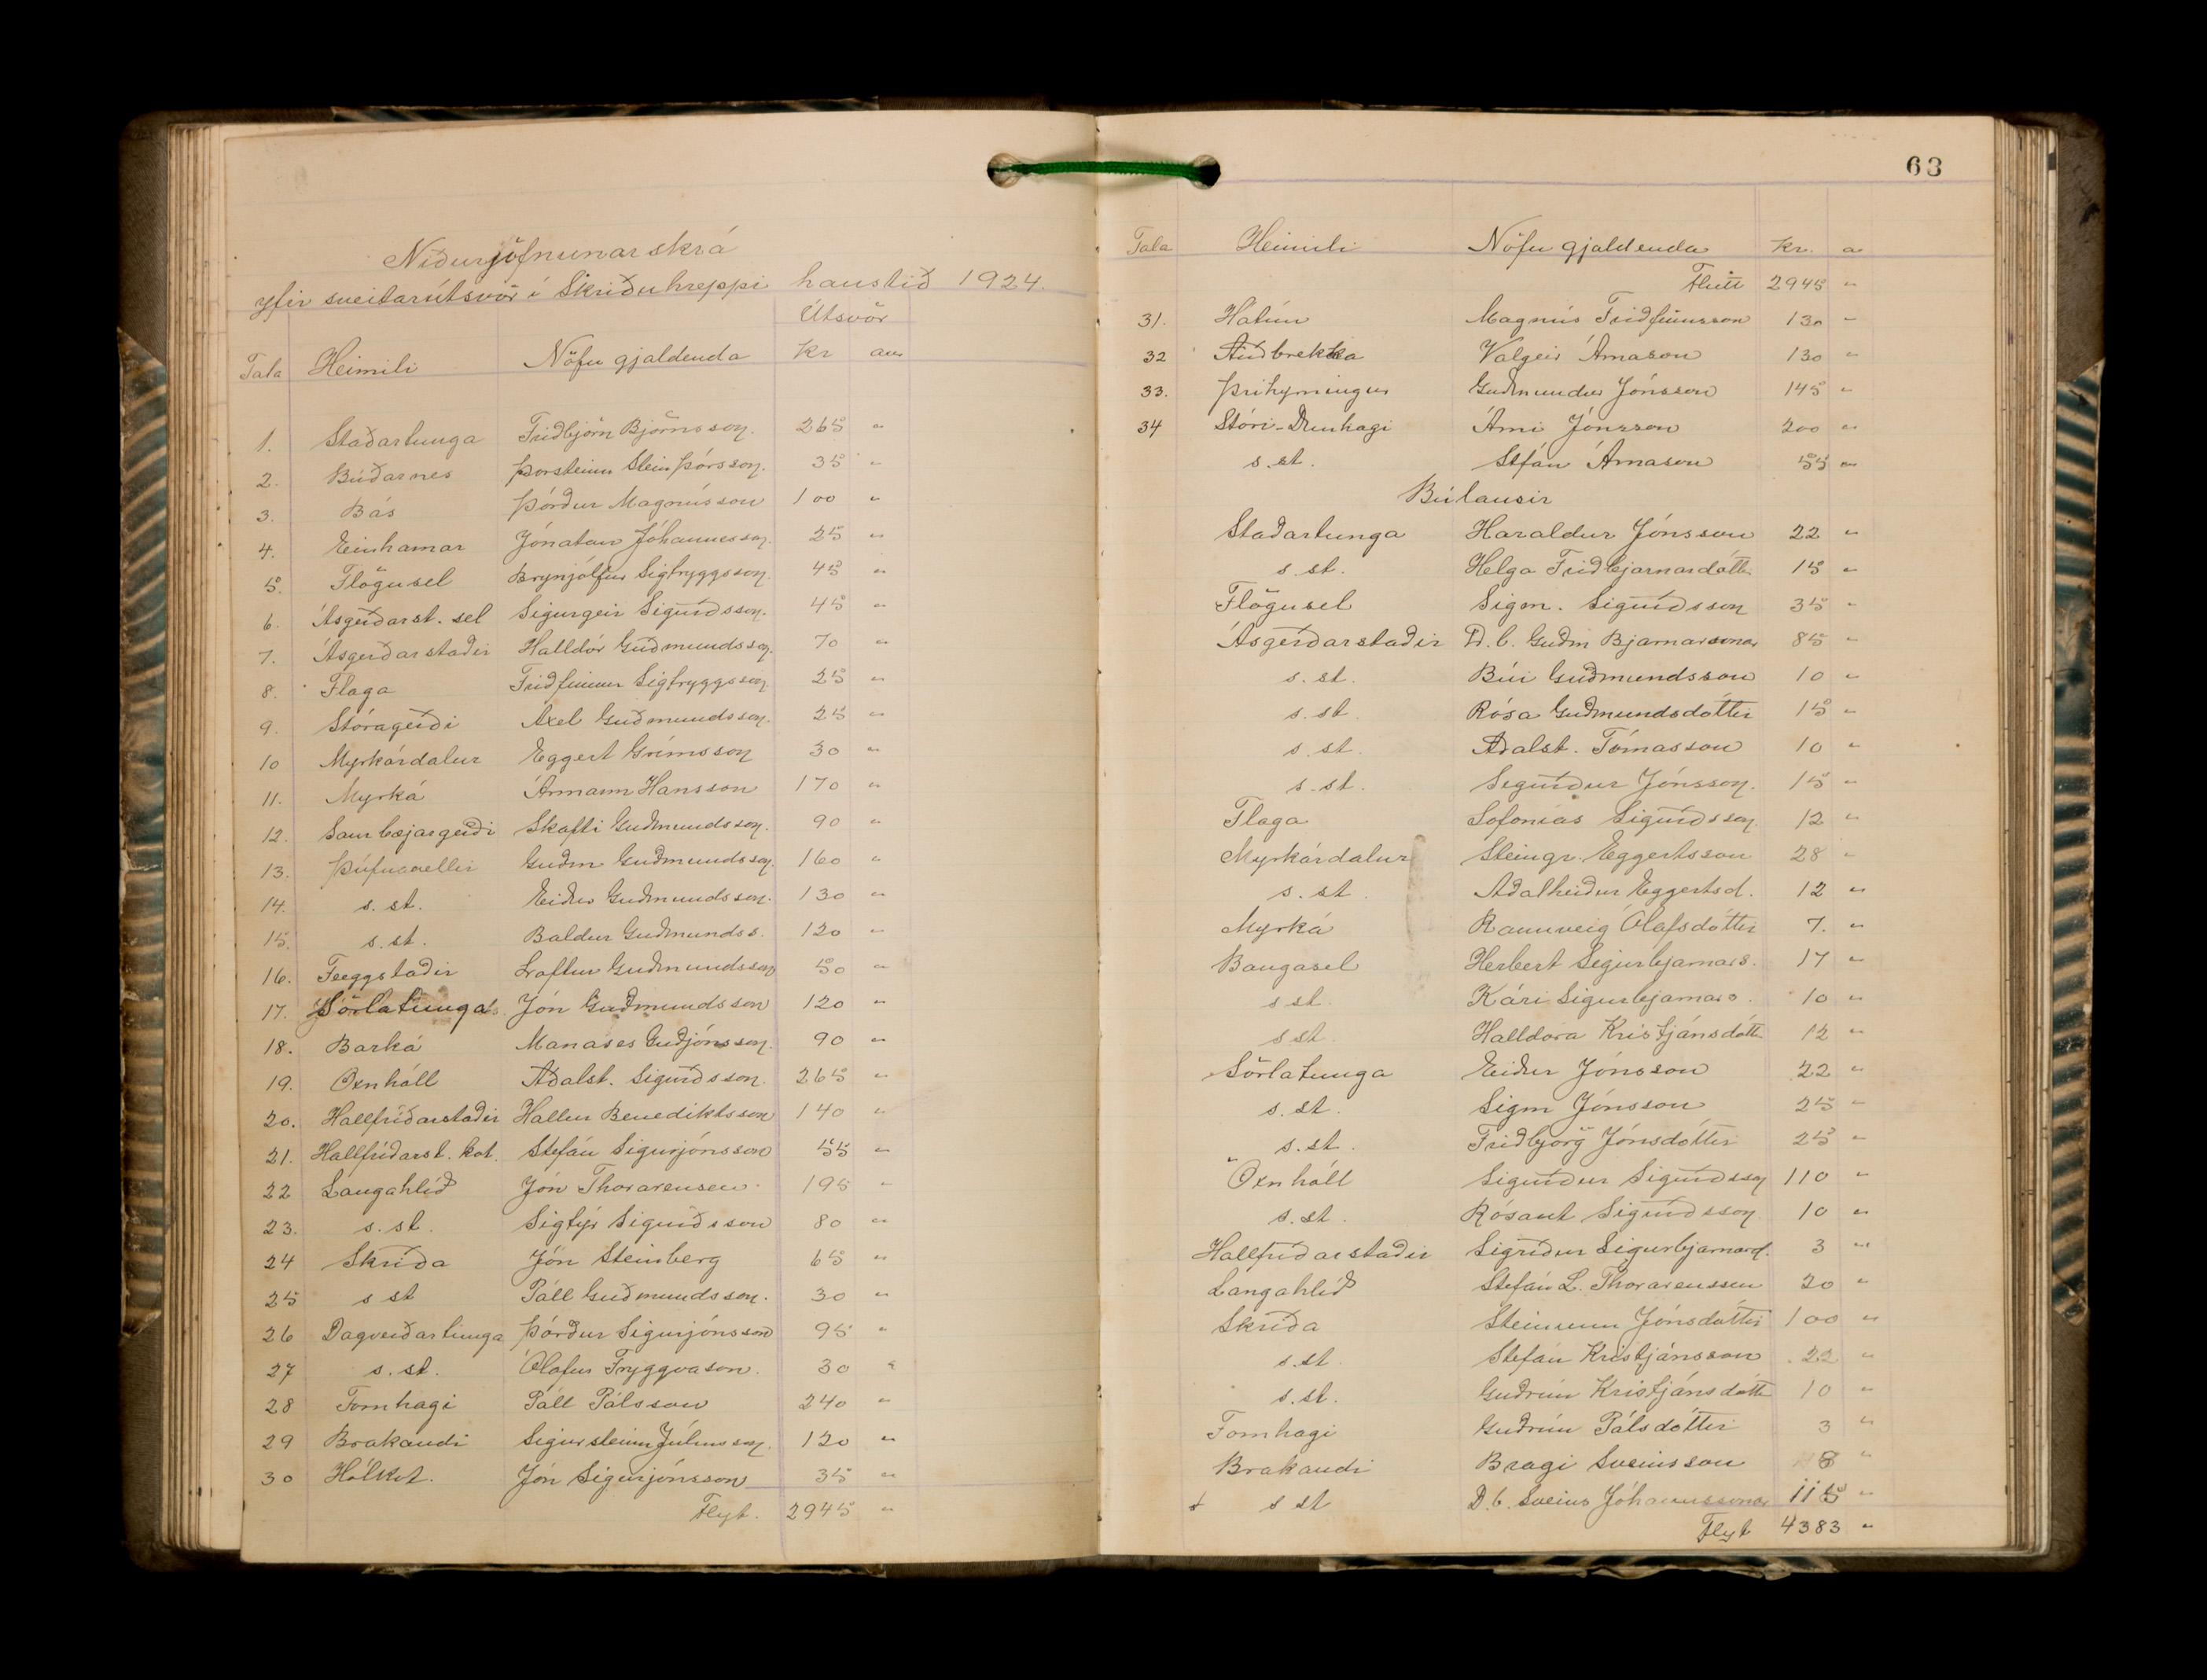 Niðurjöfnunarskrá
yfir sveitarútsvör í Skriðuhreppi haustið 1924.
Útsvör
Tala Heimili Nöfn gjaldenda Kr au
1. Staðartunga Friðbjörn Björnsson. 265 "
2. Búðarnes Þorsteinn Steinþórsson. 35 "
3. Bás Þórður Magnússon 100 "
4. Einhamar Jónatan Jóhannesson. 25 "
5. Flögusel Brynjólfur Sigtryggsson. 45 "
6. Ásgerðarst. sel Sigurgeir Sigurðsson. 45 "
7. Ásgerðarstaðir Halldór Guðmundsson. 70 "
8. Flaga Friðfinnur Sigtryggsson 25 "
9. Stóragerði Axel Guðmundsson. 25 "
10 Myrkárdalur Eggert Grímsson 30 "
11. Myrká Ármann Hansson 170 "
12. Saurbæjargerði Skafti Guðmundsson. 90 "
13. Þúfnavellir Guðm Guðmundsson. 160 "
14. s. st. Eiður Guðmundsson. 130 "
15. s. st. Baldur Guðmundss. 120 "
16. Féeggstaðir Loftur Guðmundsson 50 "
17. Sörlatunga Jón Guðmundsson 120 "
18. Barká Manases Guðjónsson. 90 "
19. Öxnhóll Aðalst. Sigurðsson. 265 "
20. Hallfríðarstaðir Hallur Benediktsson 140 "
21. Hallfríðarst. kot. Stefán Sigurjónsson 55 "
22 Langahlíð Jón Thorarensen. 195 "
23. s. st. Sigtýr Sigurðsson 80 "
24 Skriða Jón Steinberg 65 "
25 s st Páll Guðmundsson. 30 "
26 Dagverðartunga Þórður Sigurjónsson 95 "
27 s. st. Ólafur Tryggvason. 30 "
28 Fornhagi Páll Pálsson 240 "
29 Brakandi Sigursteinn Júlíusson. 120 "
30 Hólkot. Jón Sigurjónsson 35 "
Flyt. 2945 "
63
Tala Heimili Nöfn gjaldenda Kr. a
Flutt 2945 "
31. Hátún Magnús Friðfinnsson 130 "
32 Auðbrekka Valgeir Árnason 130 "
33. Þríhyrningur Guðmundur Jónsson 145 "
34 Stóri-Dunhagi Árni Jónsson 200 "
s. st. Stefán Árnason 55 "
Búlausir
Staðartunga Haraldur Jónsson 22 "
s. st. Helga Friðbjarnardóttir 15 "
Flögusel Sigm. Sigurðsson 35 "
Ásgerðarstaðir D. b. Guðm Bjarnarsonar 85 "
s. st. Búi Guðmundsson 10 "
s. st Rósa Guðmundsdóttir 15 "
s. st. Aðalst. Tómasson 10 "
s. st. Sigurður Jónsson. 15 "
Flaga Sofonías Sigurðsson. 12 "
Myrkárdalur Steingr. Eggertsson 28 "
s. st Aðalheiður Eggertsd. 12 "
Myrká Rannveig Ólafsdóttir 7. "
Baugasel Herbert Sigurbjarnars. 17 "
s st. Kári Sigurbjarnars. 10 "
s st. Halldóra Kristjánsdótti 12 "
Sörlatunga Eiður Jónsson 22 "
s. st. Sigm Jónsson 25 "
s. st. Friðbjörg Jónsdóttir 25 "
Öxnhóll Sigurður Sigurðsson 110 "
s. st. Rósant Sigurðsson 10 "
Hallfríðarstaðir Sigríður Sigurbjarnard. 3 "
Langahlíð Stefán L. Thorarenssen 20 "
Skriða Steinunn Jónsdóttir 100 "
s. st. Stefán Kristjánsson 22 "
s. st. Guðrún Kristjánsdótti 10 "
Fornhagi Guðrún Pálsdóttir 3 "
Brakandi Bragi Sveinsson 8 "
s st D. b. Sveins Jóhannssonar 115 "
Flyt 4383 "